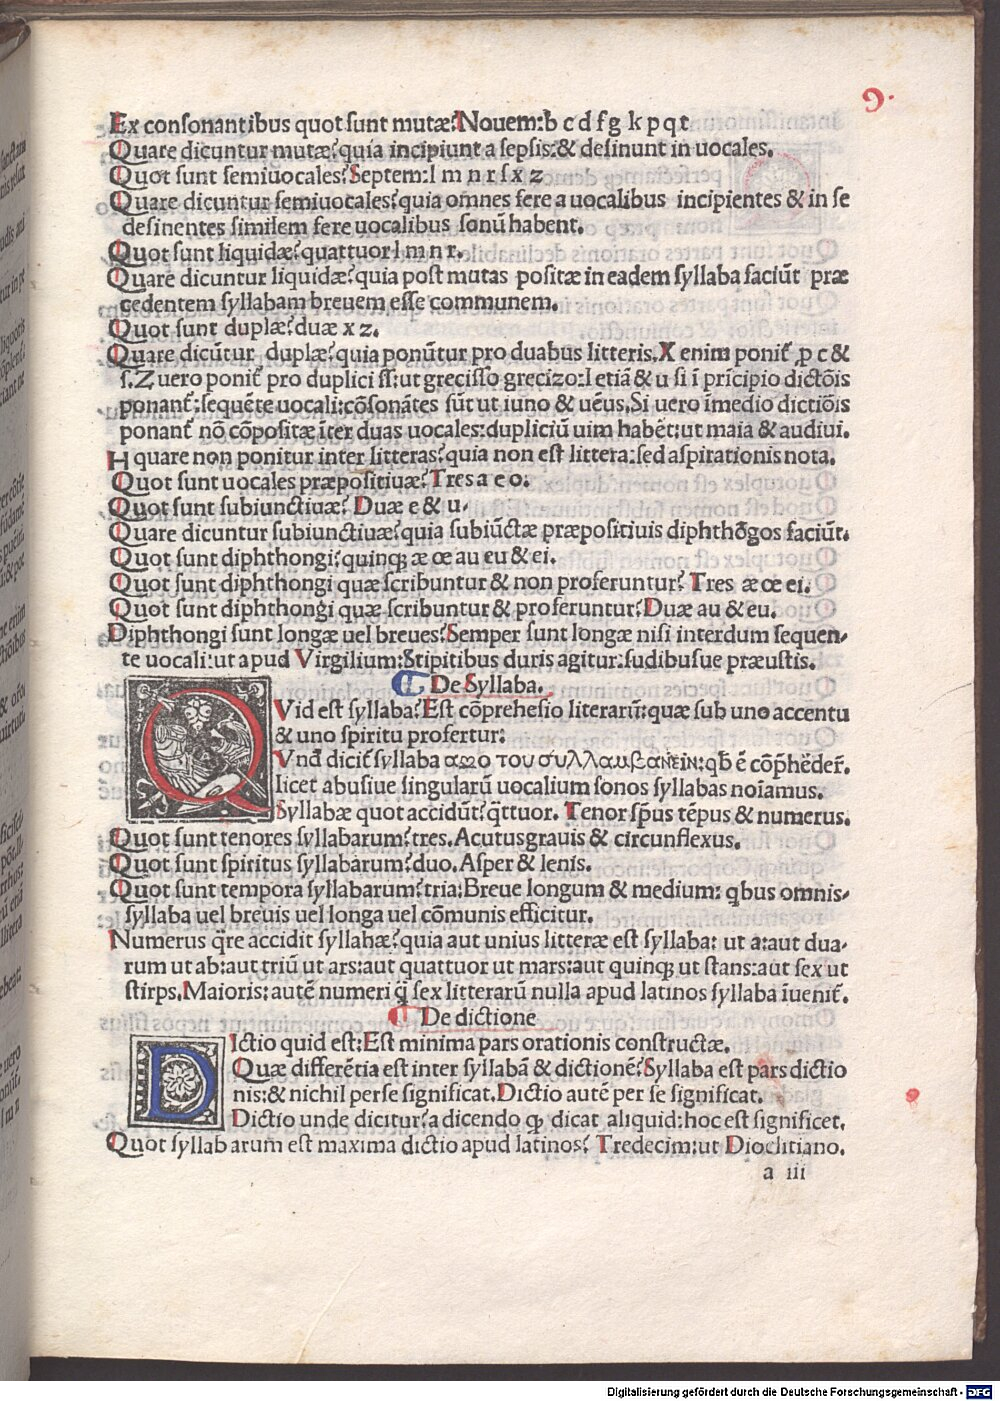 9.
Ex conſonantibus quot ſunt mutæ? Nouem: b c d f g k p q t
Quare dicuntur mutæ? quia incipiunt a ſepſis: & deſinunt in uocales.
Quot ſunt ſemiuocales? Septem: l m n r ſ x z
Quare dicuntur ſemiuocales? quia omnes fere a uocalibus incipientes & in ſe
deſinentes ſimilem fere uocalibus ſonū habent.
Quot ſunt liquidæ? quattuor l m n r.
Quare dicuntur liquidæ? quia poſt mutas poſitæ in eadem ſyllaba faciūt præ
cedentem ſyllabam breuem eſſe communem.
Quot ſunt duplæ? duæ x z.
Quare dicūtur duplæ? quia ponūtur pro duabus litteris. X enim poniť ꝓ c &
ſ. Z uero poniť pro duplici ſſ: ut greciſſo grecizo: I etiā & u ſi ī prīcipio dictōis
ponanť: ſequēte uocali: cōſonātes ſūt ut iuno & uēus. Si uero īmedio dictiōis
ponanť nō cōpoſitæ īter duas uocales: dupliciū uim habēt: ut maia & audiui.
H quare non ponitur inter litteras? quia non eſt littera: ſed aſpirationis nota.
Quot ſunt uocales præpoſitiuæ? Tres a e o.
Quot ſunt ſubiunctiuæ? Duæ e & u.
Quare dicuntur ſubiunctiuæ? quia ſubiūctæ præpoſitiuis diphthōgos faciūt.
Quot ſunt diphthongi? quinqꝫ æ œ au eu & ei.
Quot ſunt diphthongi quæ ſcribuntur & non proferuntur? Tres æ œ ei.
Quot ſunt diphthongi quæ ſcribuntur & proferuntur? Duæ au & eu.
Diphthongi ſunt longæ uel breues? Semper ſunt longæ niſi interdum ſequen-
te uocali: ut apud Virgilium: Stipitibus duris agitur: ſudibuſue præuſtis.
¶ De Syllaba.
QVid eſt ſyllaba? Eſt cōprehēſio literarū: quæ ſub uno accentu
& uno ſpiritu profertur:
Vnđ diciť ſyllaba απο του συλλαμβανειν: qƀ ē cōp̄hēdeř.
licet abuſiue singularū uocalium ſonos ſyllabas noīamus.
Syllabæ quot accidūt? q̄ttuor. Tenor ſp̄us tēpus & numerus.
Quot ſunt tenores ſyllabarum? tres. Acutus grauis & circunflexus.
Quot ſunt ſpiritus ſyllabarum? duo. Aſper & lenis.
Quot ſunt tempora ſyllabarum? tria: Breue longum & medium: qbus omnis-
ſyllaba uel breuis uel longa uel cōmunis efficitur.
Numerus q̄re accidit ſyllabæ? quia aut unius litteræ eſt ſyllaba: ut a: aut dua-
rum ut ab: aut triū ut ars: aut quattuor ut mars: aut quinqꝫ ut ſtans: aut ſex ut
ſtirps. Maioris: autē numeri q̄ ſex litterarū nulla apud latinos ſyllaba īueniť.
¶ De dictione
DIctio quid eſt: Eſt minima pars orationis conſtructæ.
Quæ differētia eſt inter ſyllabā & dictionē? Syllaba eſt pars dictio
nis: & nichil per ſe ſignificat. Dictio autē per ſe ſignificat.
Dictio unde dicitur? a dicendo qꝫ dicat aliquid: hoc eſt ſignificet.
Quot ſyllabarum eſt maxima dictio apud latinos? Tredecim: ut Dioclitiano.
a iii
Digitalisierung gefördert durch die Deutsche Forschungsgemeinschaft - DFG